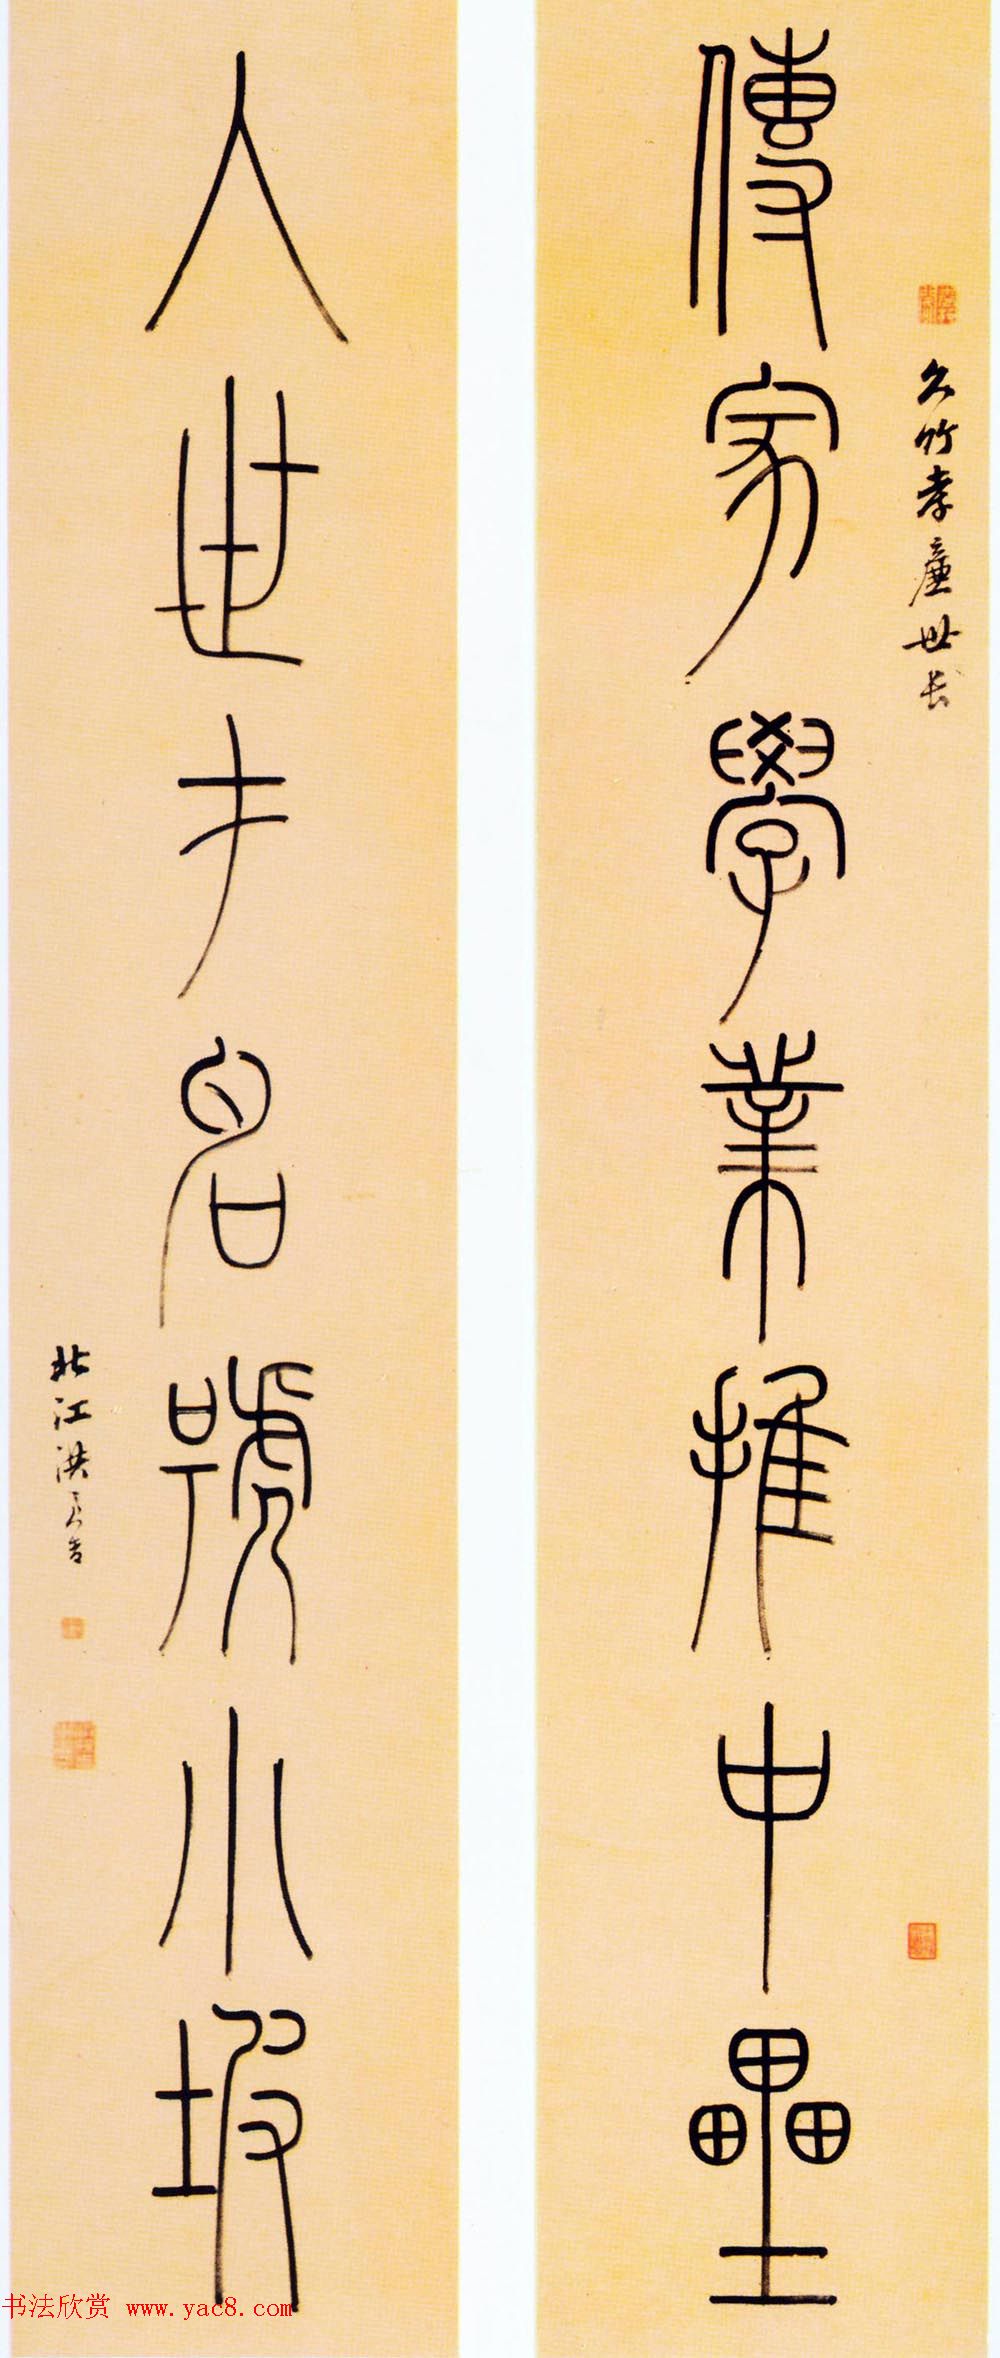 傳家學業推中壘
久竹孝廉世長
入世才名號小坡
北江洪亮吉
书法欣赏 www.yac8.com